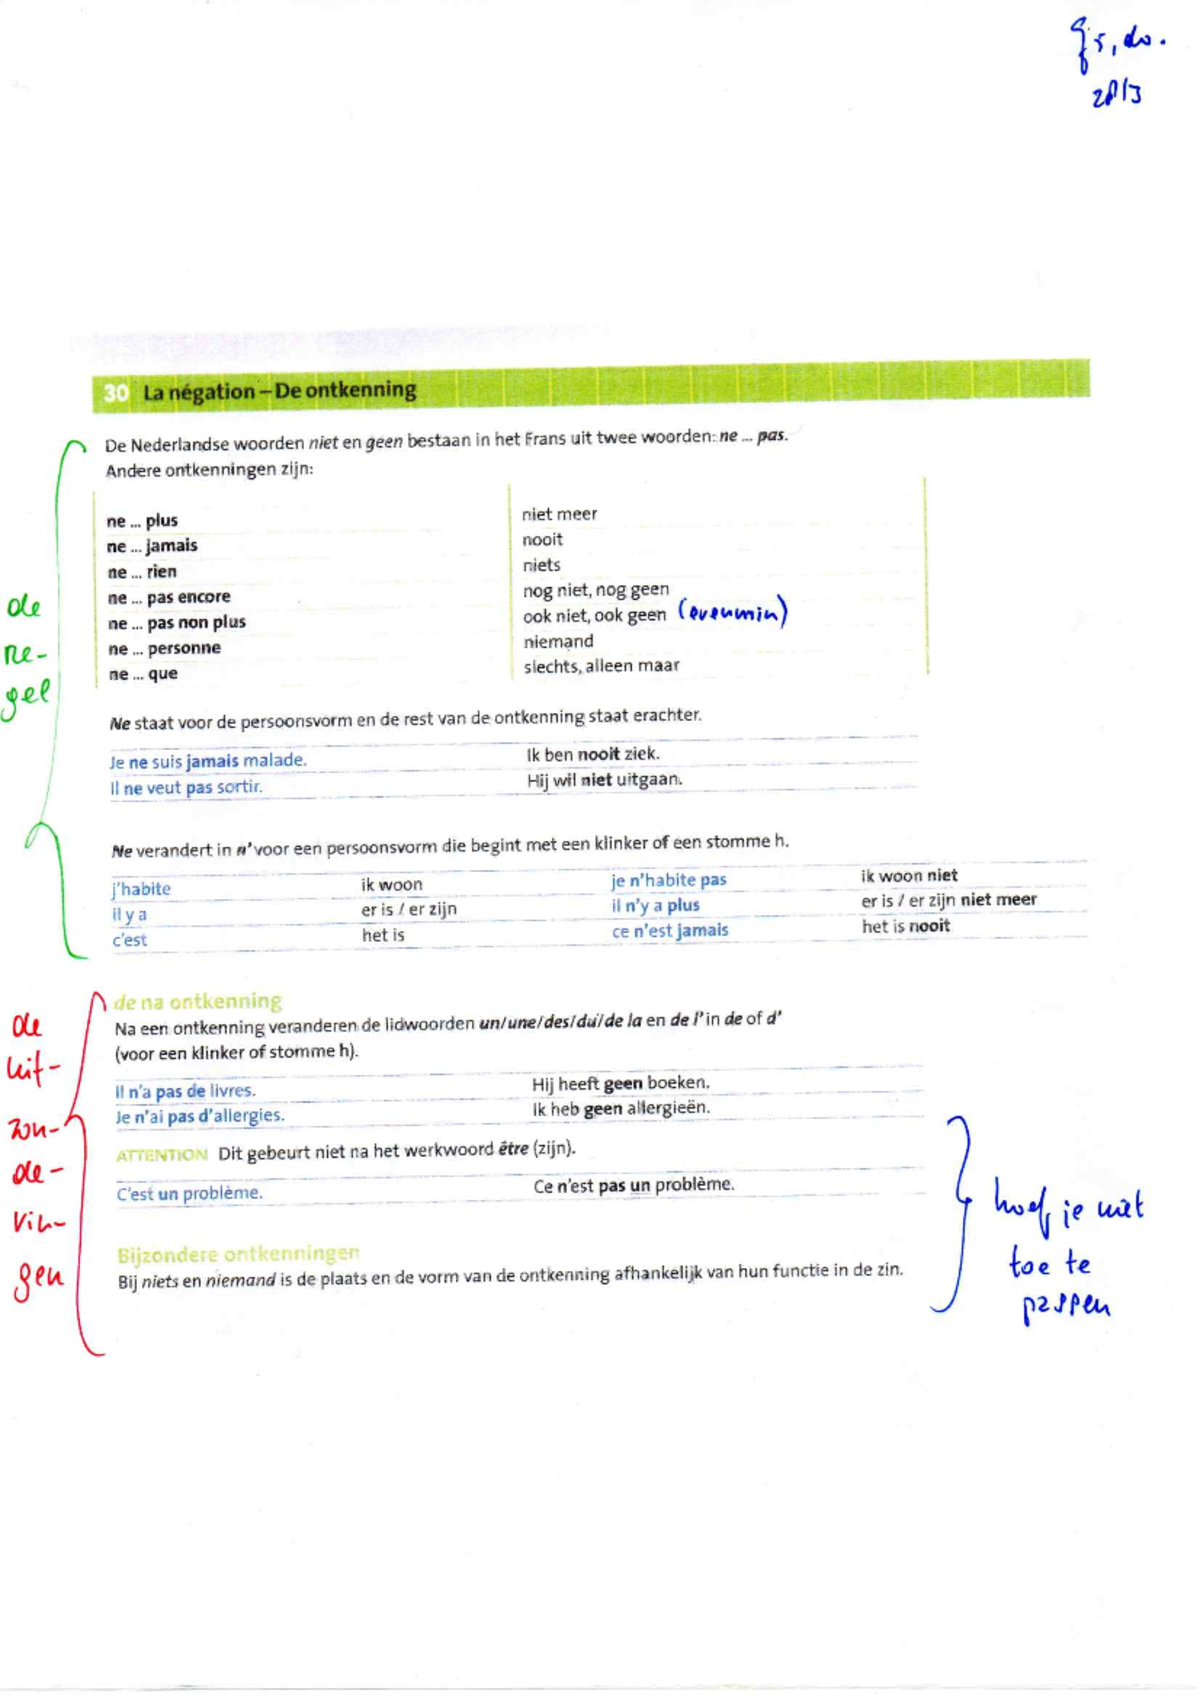 do.
28/3
30 La négation – De ontkenning
De Nederlandse woorden niet en geen bestaan in het Frans uit twee woorden: ne ... pas.
Andere ontkenningen zijn:
ne ... plus niet meer
ne ... jamais nooit
ne ... rien niets
ne ... pas encore nog niet, nog geen
ne ... pas non plus ook niet, ook geen (evenmin)
ne ... personne niemand
ne ... que slechts, alleen maar
de
re-
gel
Ne staat voor de persoonsvorm en de rest van de ontkenning staat erachter.
Je ne suis jamais malade. Ik ben nooit ziek.
Il ne veut pas sortir. Hij wil niet uitgaan.
Ne verandert in n' voor een persoonsvorm die begint met een klinker of een stomme h.
j'habite ik woon je n'habite pas ik woon niet
il y a er is / er zijn il n'y a plus er is / er zijn niet meer
c'est het is ce n'est jamais het is nooit
de na ontkenning
Na een ontkenning veranderen de lidwoorden un/une/des/du/de la en de l' in de of d'
(voor een klinker of stomme h).
Il n'a pas de livres. Hij heeft geen boeken.
Je n'ai pas d'allergies. Ik heb geen allergieën.
ATTENTION Dit gebeurt niet na het werkwoord être (zijn).
C'est un problème. Ce n'est pas un problème.
Bijzondere ontkenningen
Bij niets en niemand is de plaats en de vorm van de ontkenning afhankelijk van hun functie in de zin.
de
uit-
zon-
de-
rin-
gen
hoef je niet
toe te
passen